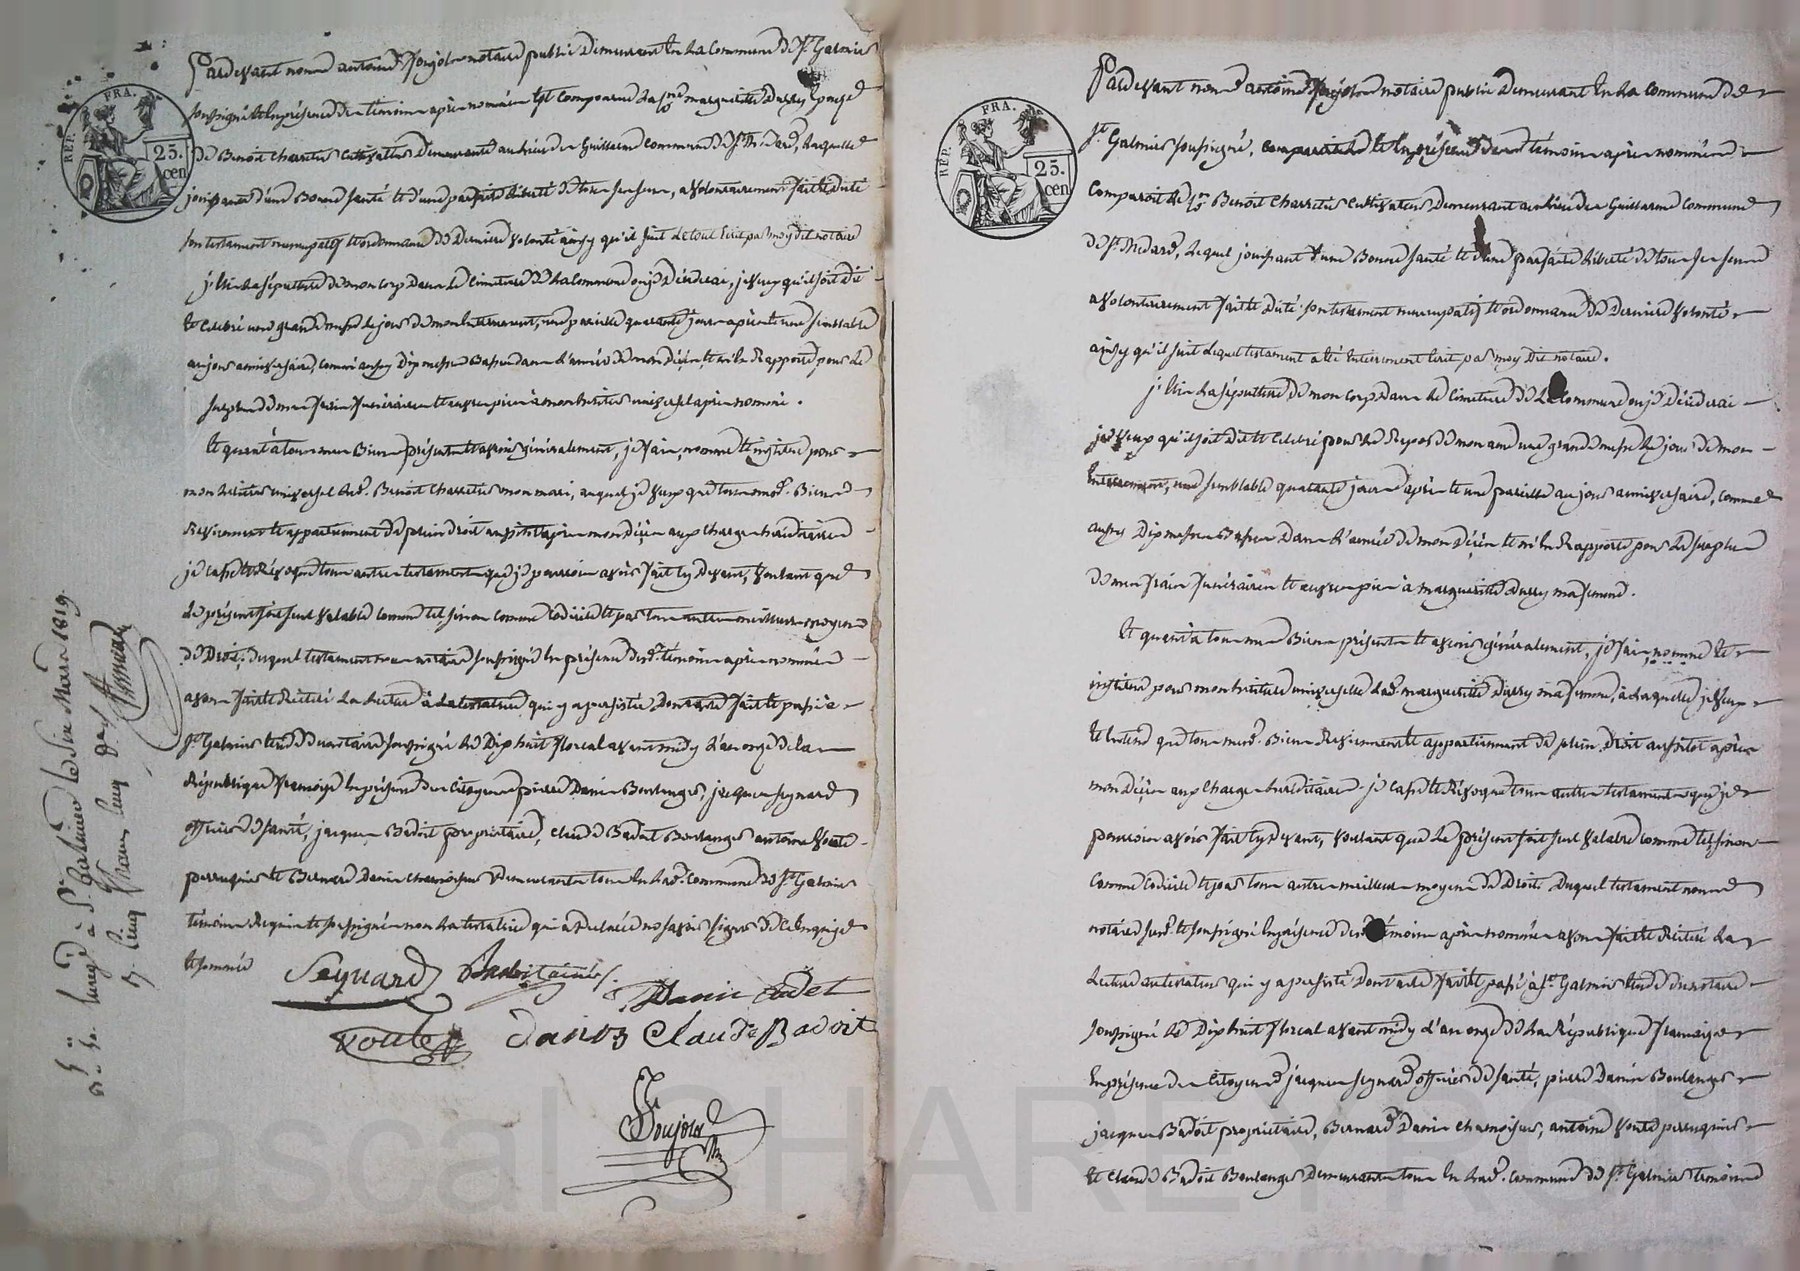 REP. FRA.
25.
cen
Pardevant nous antoine Poujol notaire public Demeurant En La Commune de St. Galmier
soussigné et En présence des témoins après nommés est Comparue La nee marguerite Durry Epouse
de Benoit Charretier Cultivateur Demeurante au lieu des Guillaume Commune de St. Médard, Laquelle
jouissante d'une Bonne santé et d'une parfaite liberté de tous ses sens, a volontairement fait et dicté
son testament nuncupatif et ordonnance de Derniere volonté ainsy qu'il suit le tout Ecrit par moy dit notaire
j'Elis La sépulture de mon corps Dans Le Cimetiere de La Commune ou je Décéderai, je veux qu'il soit dit
et Celebré une grande messe Le jour de mon Enterrement, une pareille quarante jours après et une semblable
au jour anniversaire, comme aussy Dix messes Basses dans L'année de mon décès, et m'En Rapporte pour Le
surplus de mes frais funéraires et œuvres pies à mon heritier universel après nommé.
Et quant à tous mes Biens présents et avenir généralement, je fais, nomme et institue pour
mon héritier universel Led. Benoit Charretier mon mari, auquel je veux que tous mesd. Biens
Reviennent et appartiennent de plein droit aussitôt après mon décès aux charges héréditaires
je Casse et Révoque tous autres testaments que je pourrois avoir fait cy devant, voulant que
Le présent soit seul valable comme tel sinon comme Codicile et par tous autres meilleurs moyens
de Droit. Duquel testament nous notaire soussigné En présence desd. témoins après nommés
avons fait et Réitéré La Lecture à La testatrice qui y a persisté Dont acte fait et passé à
St. Galmier Etude du notaire soussigné Le Dix huit floreal avant midy L'an onze de la
République française En présence des Citoyens pierre Danis Boulanger, jacques seynard
officier de santé, jacques Badoit proprietaire, Claude Badoit Boulanger antoine Voute
perruquier et Bernard Danis chamoiseur Demeurants tous En Lad. Commune de St. Galmier
témoins Requis et soussignés non La testatrice qui a Déclaré ne savoir signer de ce Enquise
et sommée
Seynard Badoit ainé
Danis Cadet
Voute Danis Claude Badoit
Poujol
Nre
Enregé à St. Galmier Le dix Mars 1819
REP. FRA.
25.
cen
Pardevant nous antoine Poujol notaire public Demeurant En La Commune de
St. Galmier soussigné, et En présence des témoins après nommés
Comparoit Le Benoit Charretier Cultivateur Demeurant au lieu des Guillaume Commune
de St. Médard, Lequel jouissant d'une Bonne santé et d'une parfaite liberté de tous ses sens
a volontairement fait et dicté son testament nuncupatif et ordonnance de Derniere volonté
ainsy qu'il suit Lequel testament a été Entierement Ecrit par moy Dit notaire.
j'Elis La sépulture de mon corps Dans Le Cimetiere de La Commune ou je Décéderai
je veux qu'il soit dit et Celebré pour Le Repos de mon ame une grande messe Le jour de mon
Enterrement, une semblable quarante jours après et une pareille au jour anniversaire, comme
aussy Dix messes Basses Dans L'année de mon Décès et m'En Rapporte pour Le surplus
de mes frais funéraires et œuvres pies à marguerite Durry ma femme.
Et quant à tous mes Biens présents et avenir généralement, je fais, nomme et
institue pour mon héritiere universelle Lad. marguerite Durry ma femme, à Laquelle je veux
et Entend que tous mesd. Biens Reviennent et appartiennent de plein Droit aussitôt après
mon Décès aux Charges héréditaires. je Casse et Révoque tous autres testaments que je
pourrois avoir fait cy devant, voulant que Le présent soit seul valable comme tel sinon
comme Codicile et par tous autres meilleurs moyens de Droit. Duquel testament nous
notaire susd. et soussigné En présence des témoins après nommés avons fait et Réitéré La
Lecture au testateur qui y a persisté Dont acte fait et passé à St. Galmier Etude du notaire
soussigné Le Dix huit floreal avant midy L'an onze de La République française
En présence des Citoyens jacques seynard officier de santé, pierre Danis Boulanger
jacques Badoit proprietaire, Bernard Danis chamoiseur, antoine Voute perruquier
et Claude Badoit Boulanger Demeurants tous En Lad. Commune de St. Galmier témoins
Pascal CHAREYRON